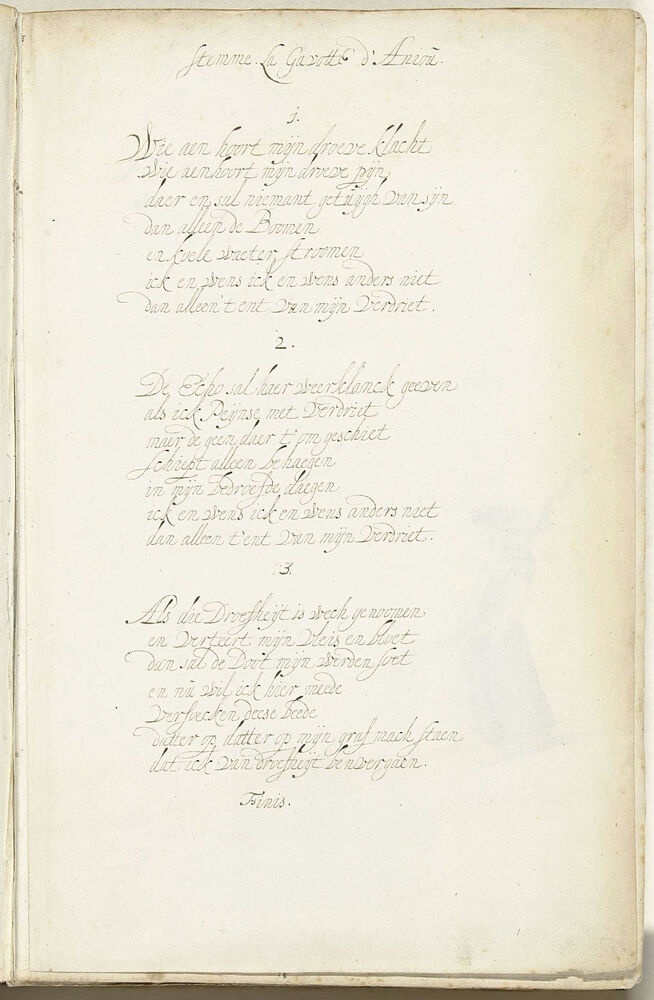 Stemme. La Gavotte d'Aniou.
1.
Wie aen hoort mijn droeve klacht
Wie aenhoort mijn droeve pijn
daer en sal niemant getuijgh van sijn
dan alleen de Boomen
en koele waeter stroomen
ick en wens ick en wens anders niet
dan alleen 't ent van mijn verdriet.
2.
De Echo sal haer weerklanck geeven
als ick Peijnse met verdriet
maer de geen daer t' om geschiet
schiept alleen behaegen
in mijn bedroefde daegen
ick en wens ick en wens anders niet
dan alleen t'ent van mijn verdriet.
3.
Als die Droefheijt is wech genoomen
en verteert mijn vleis en bloet
dan sal de Doot mijn werden soet
en nu wil ick hier meede
versoecken deese beede
datter op datter op mijn graf mach staen
dat ick van droefheijt ben vergaen.
Finis.